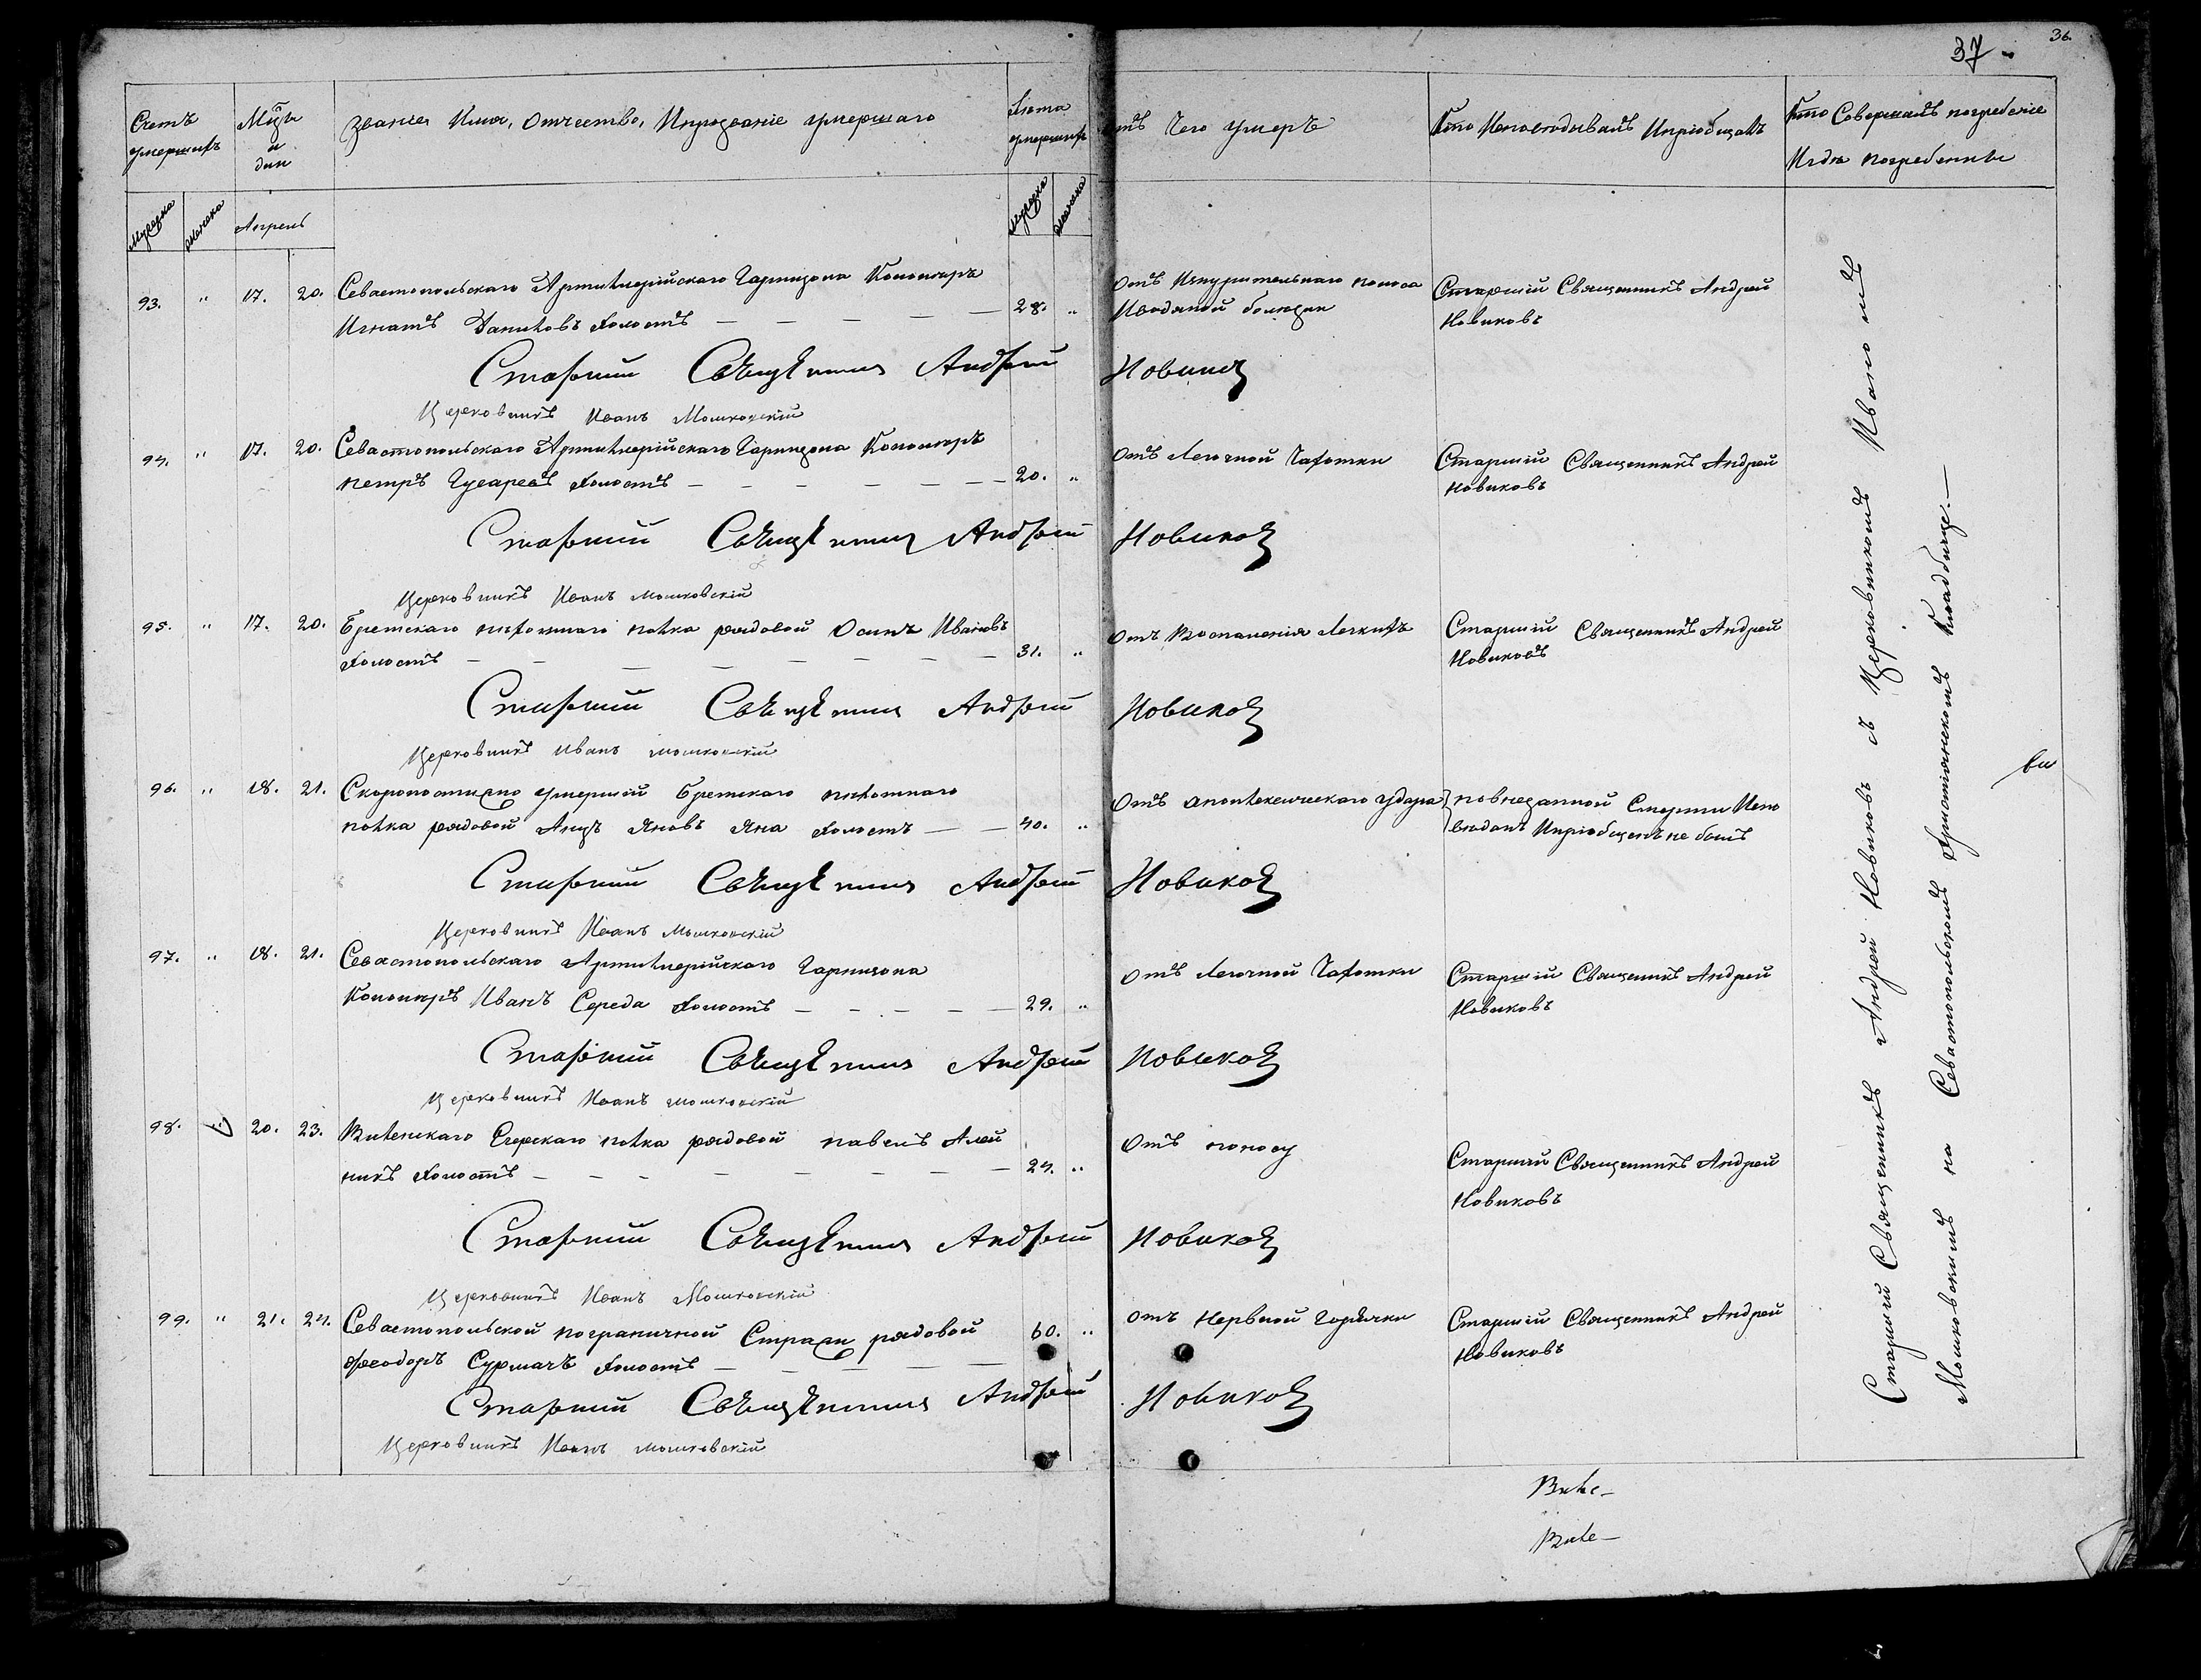 37
36.
Счетъ умершихъ
Мѣсц и дни
Званіе, Имя, Отчество, И прозваніе умершаго
Лѣта умершихъ
отъ Чего умеръ
Кто Исповѣдывалъ И пріобщалъ
Кто Совершалъ погребеніе
И гдѣ погребенны
Мужеска
Женска
Апрель
Мужеска
Женска
93. " 17. 20. Севастопольскаго Артиллерійскаго Гарнизона Канониръ
Игнатъ Даниловъ холостъ — — — — — 28. "
Отъ Изнурительнаго поноса
И водяной болезни
Старшій Священникъ Андрей
Новиковъ
Старшій Священникъ Андрей Новиковъ
Церковникъ Иванъ Мошковскій
94. " 17. 20. Севастопольскаго Артиллерійскаго Гарнизона Канониръ
Петръ Гусаревъ холостъ — — — — — — 20. "
Отъ Легочной Чахотки
Старшій Священникъ Андрей
Новиковъ
Старшій Священникъ Андрей Новиковъ
Церковникъ Иванъ Мошковскій
95. " 17. 20. Брестскаго пѣхотнаго полка рядовой Осипъ Ивановъ
холостъ — — — — — — — 31. "
Отъ Воспаленія Легкихъ
Старшій Священникъ Андрей
Новиковъ
Старшій Священникъ Андрей Новиковъ
Церковникъ Иванъ Мошковскій
96. " 18. 21. Скоропостижно умершій Брестскаго пѣхотнаго
полка рядовой Анцъ Яновъ Яна холостъ — — 40. "
Отъ апоплексическаго удара
по внезапной Смерти Испо
вѣданъ И пріобщенъ не былъ
Старшій Священникъ Андрей Новиковъ
Церковникъ Иванъ Мошковскій
97. " 18. 21. Севастопольскаго Артиллерійскаго Гарнизона
Канониръ Иванъ Середа холостъ — — — — — 29. "
Отъ Легочной Чахотки
Старшій Священникъ Андрей
Новиковъ
Старшій Священникъ Андрей Новиковъ
Церковникъ Иванъ Мошковскій
98. " 20. 23. Виленскаго Егерскаго полка рядовой Павелъ Алей
никъ холостъ — — — — — — — 24. "
Отъ поносу
Старшій Священникъ Андрей
Новиковъ
Старшій Священникъ Андрей Новиковъ
Церковникъ Иванъ Мошковскій
99. " 21. 24. Севастопольской пограничной Стражи рядовой
Феодоръ Сурмачъ холостъ — — — — 60. "
Отъ Нервной Горячки
Старшій Священникъ Андрей
Новиковъ
Старшій Священникъ Андрей Новиковъ
Церковникъ Иванъ Мошковскій
Старшій Священникъ Андрей Новиковъ съ Церковникомъ Иваномъ
Мошковскимъ на Севастопольскомъ Христіанскомъ Кладбище. —